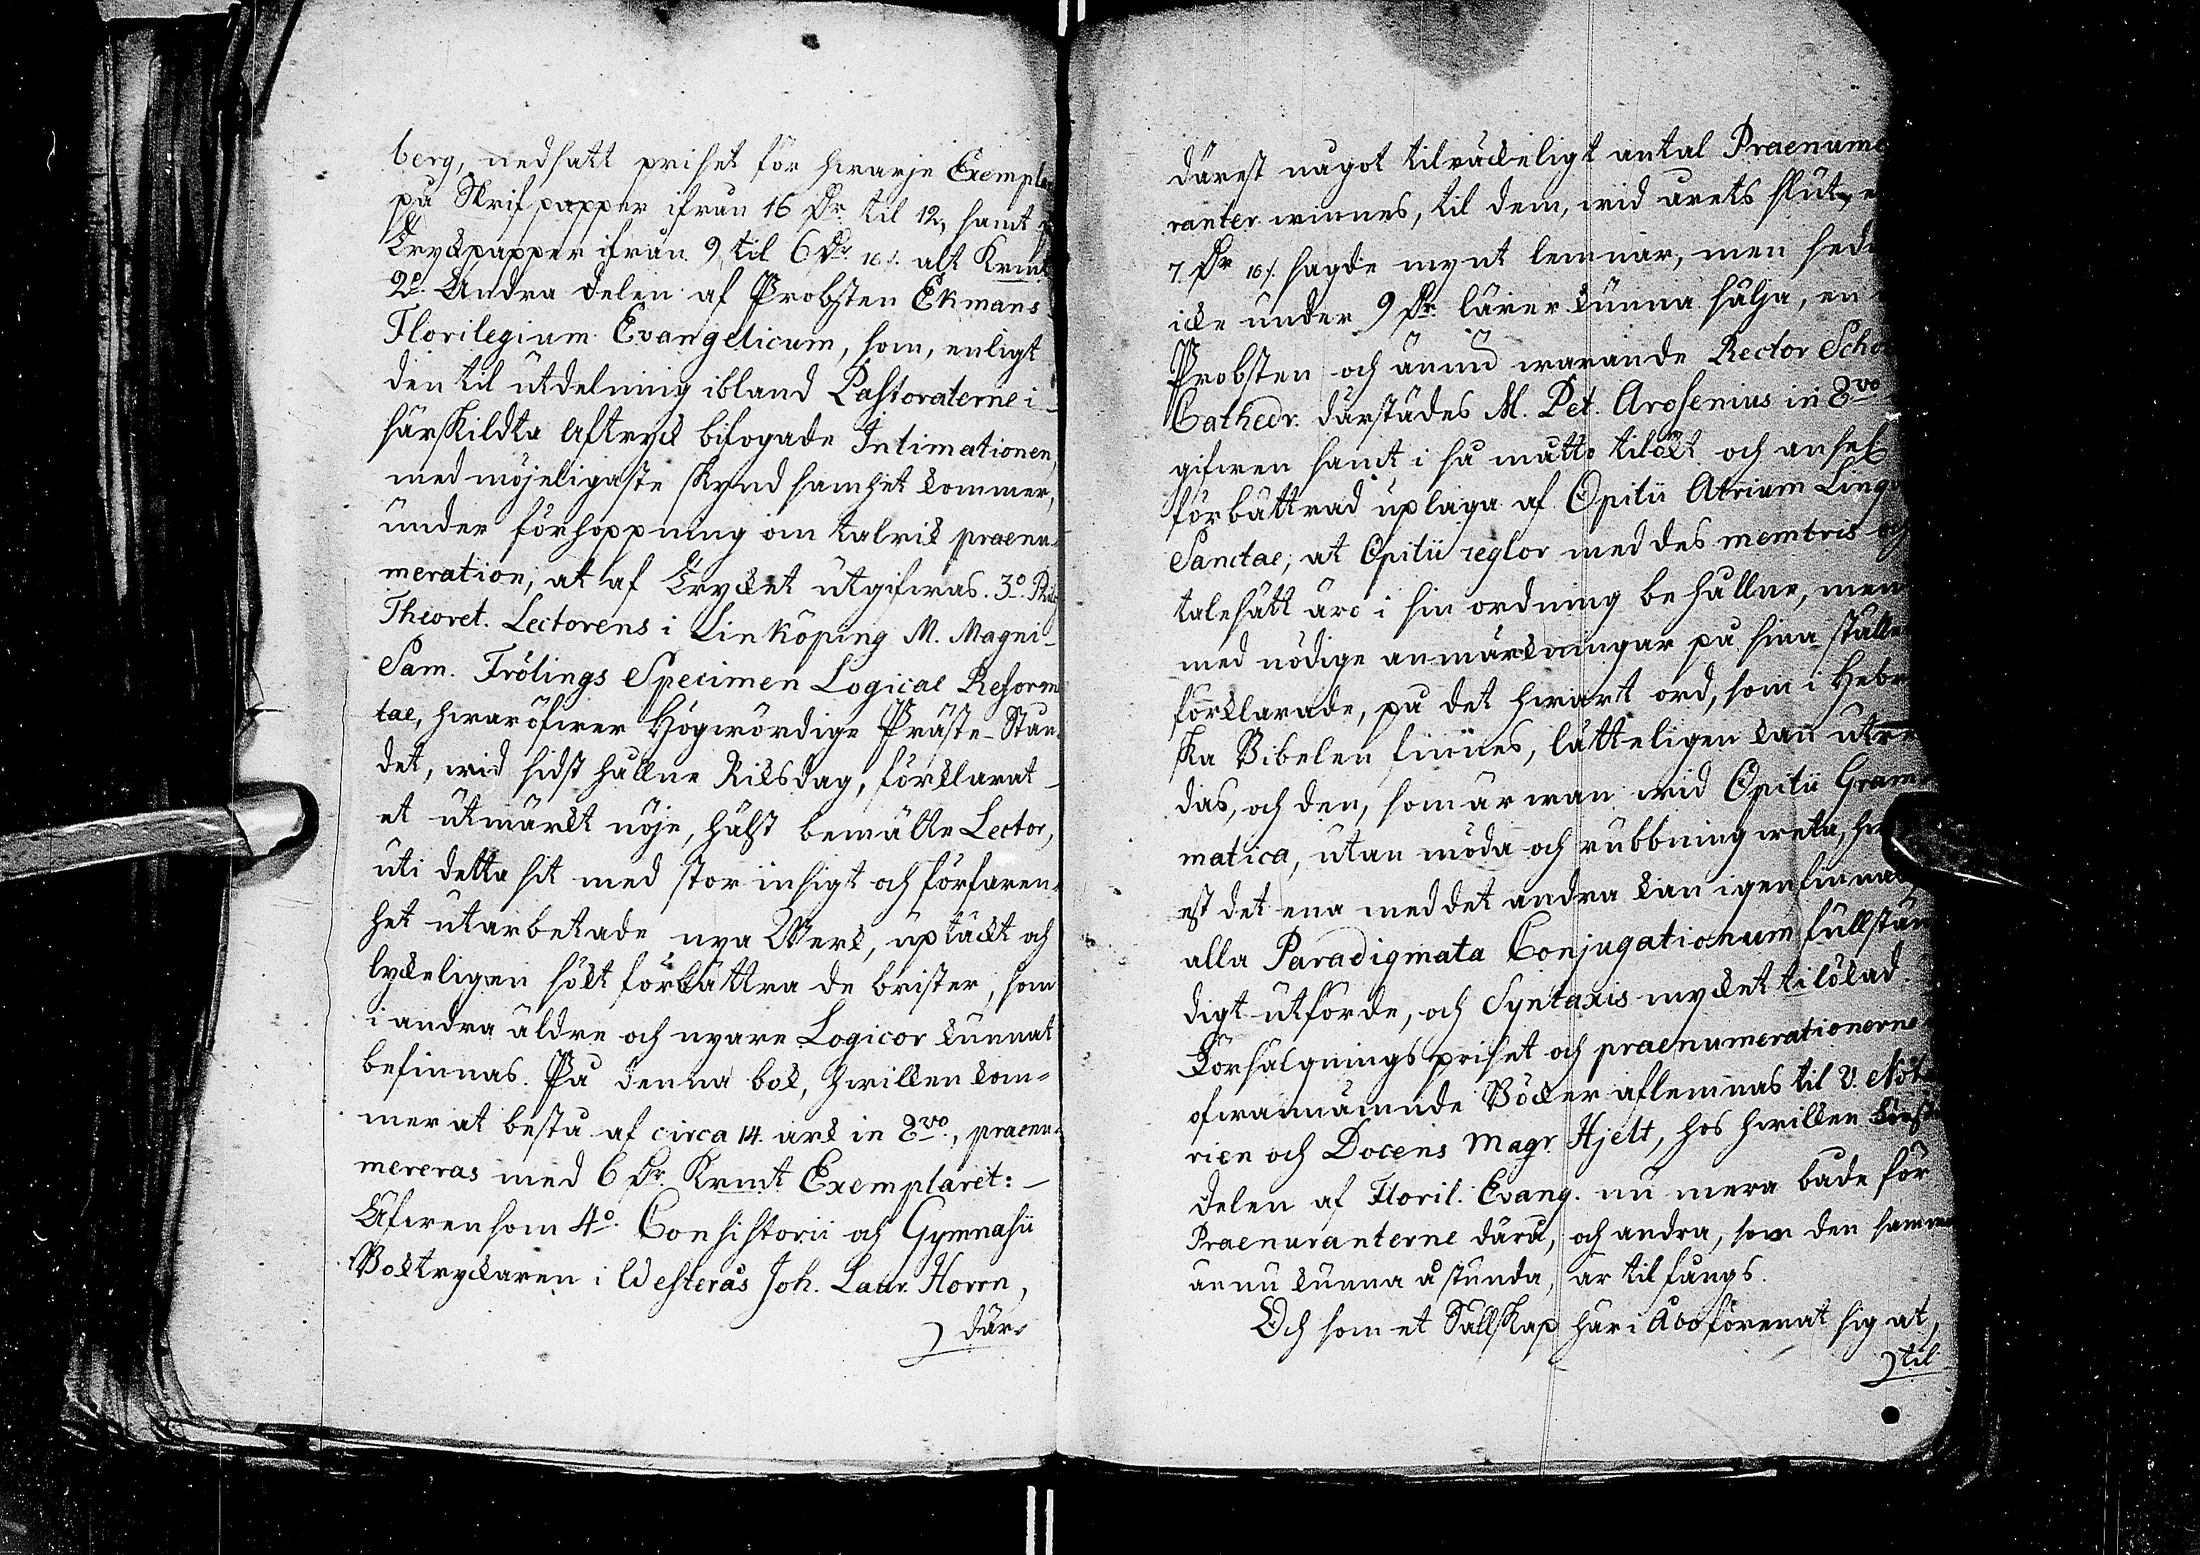 berg, nedsatt priset för hwarje Exempla
på Skrifpapper ifrån 16 Dr. til 12, samt
Tryckpapper ifrån 9 til 6 Dr. 16/. alt Krmt
2o. Andra delen af Probsten Ekmans
Florilegium Evangelicum, som, enligt
den til utdelning ibland Pastoraterne i
särskildta Aftryck bifogade Intimationen,
med möjeligaste skyndsamhet kommer,
under förhoppning om talrik praenu-
meration, at af Trycket utgifwas. 3o. Phil.
Theoret. Lectorens i Linköping M. Magni
Sam. Frölings Specimen Logicae Reform
tae, hwaröfwer Högwördige Präste-Stån-
det, wid sidst hållne Riksdag, förklarat
et utmärkt nöje, hälst bemälte Lector,
uti detta sit med stor insigt och förfaren-
het utarbetade nya Werk, uptäckt och
lyckeligen sökt förbättra de brister, som
i andra äldre och nyare Logicor kunnat
befinnas. På denna bok, hwilken kom-
mer at bestå af circa 14 ark in 8vo., praenu-
mereras med 6 Dr. Krmt Exemplaret:
Äfwensom 4o. Consistorii och Gymnasii
Boktryckaren i Westerås Joh. Laur. Horrn,
där-
därest något tilräckeligt antal Praenume
ranter winnes, til dem, wid årets slut,
7 Dr 16/. sagde mynt lemnar, men sed
icke under 9 Dr. lärer kunna sälja, en
Probsten och ännu warande Rector Scho
Cathedr. därstädes M. Pet. Arosenius in 8vo
gifwen samt i så måtto tilökt och ansel
förbättrad uplaga af Opitii Atrium Lingu
Sanctae, at Opitii reglor med des membris och
talesätt äro i sin ordning behållne, men
med nödige anmärkningar på sina ställe
förklarade, på det hwart ord, som i Hebr
ska Bibelen finnes, lätteligen kan utre
das, och den, som är wan wid Opitii Gram
matica, utan möda och rubbning weta, hw
est det ena med det andra kan igenfinnas,
alla Paradigmata Conjugationum fullstän
digt utförde, och Syntaxis mycket tilökad.
Försälgnings priset och praenumerationerne
ofwannämnde Böcker aflemnas til V. Not
rien och Docens Magr. Hjelt, hos hwilken förs
delen af Floril. Evang. nu mera både för
Praenuranterne därå, och andra, som den samma
ännu kunna åstunda, är til fångs.
Och som et Sällskap här i Åbo förenat sig at,
til